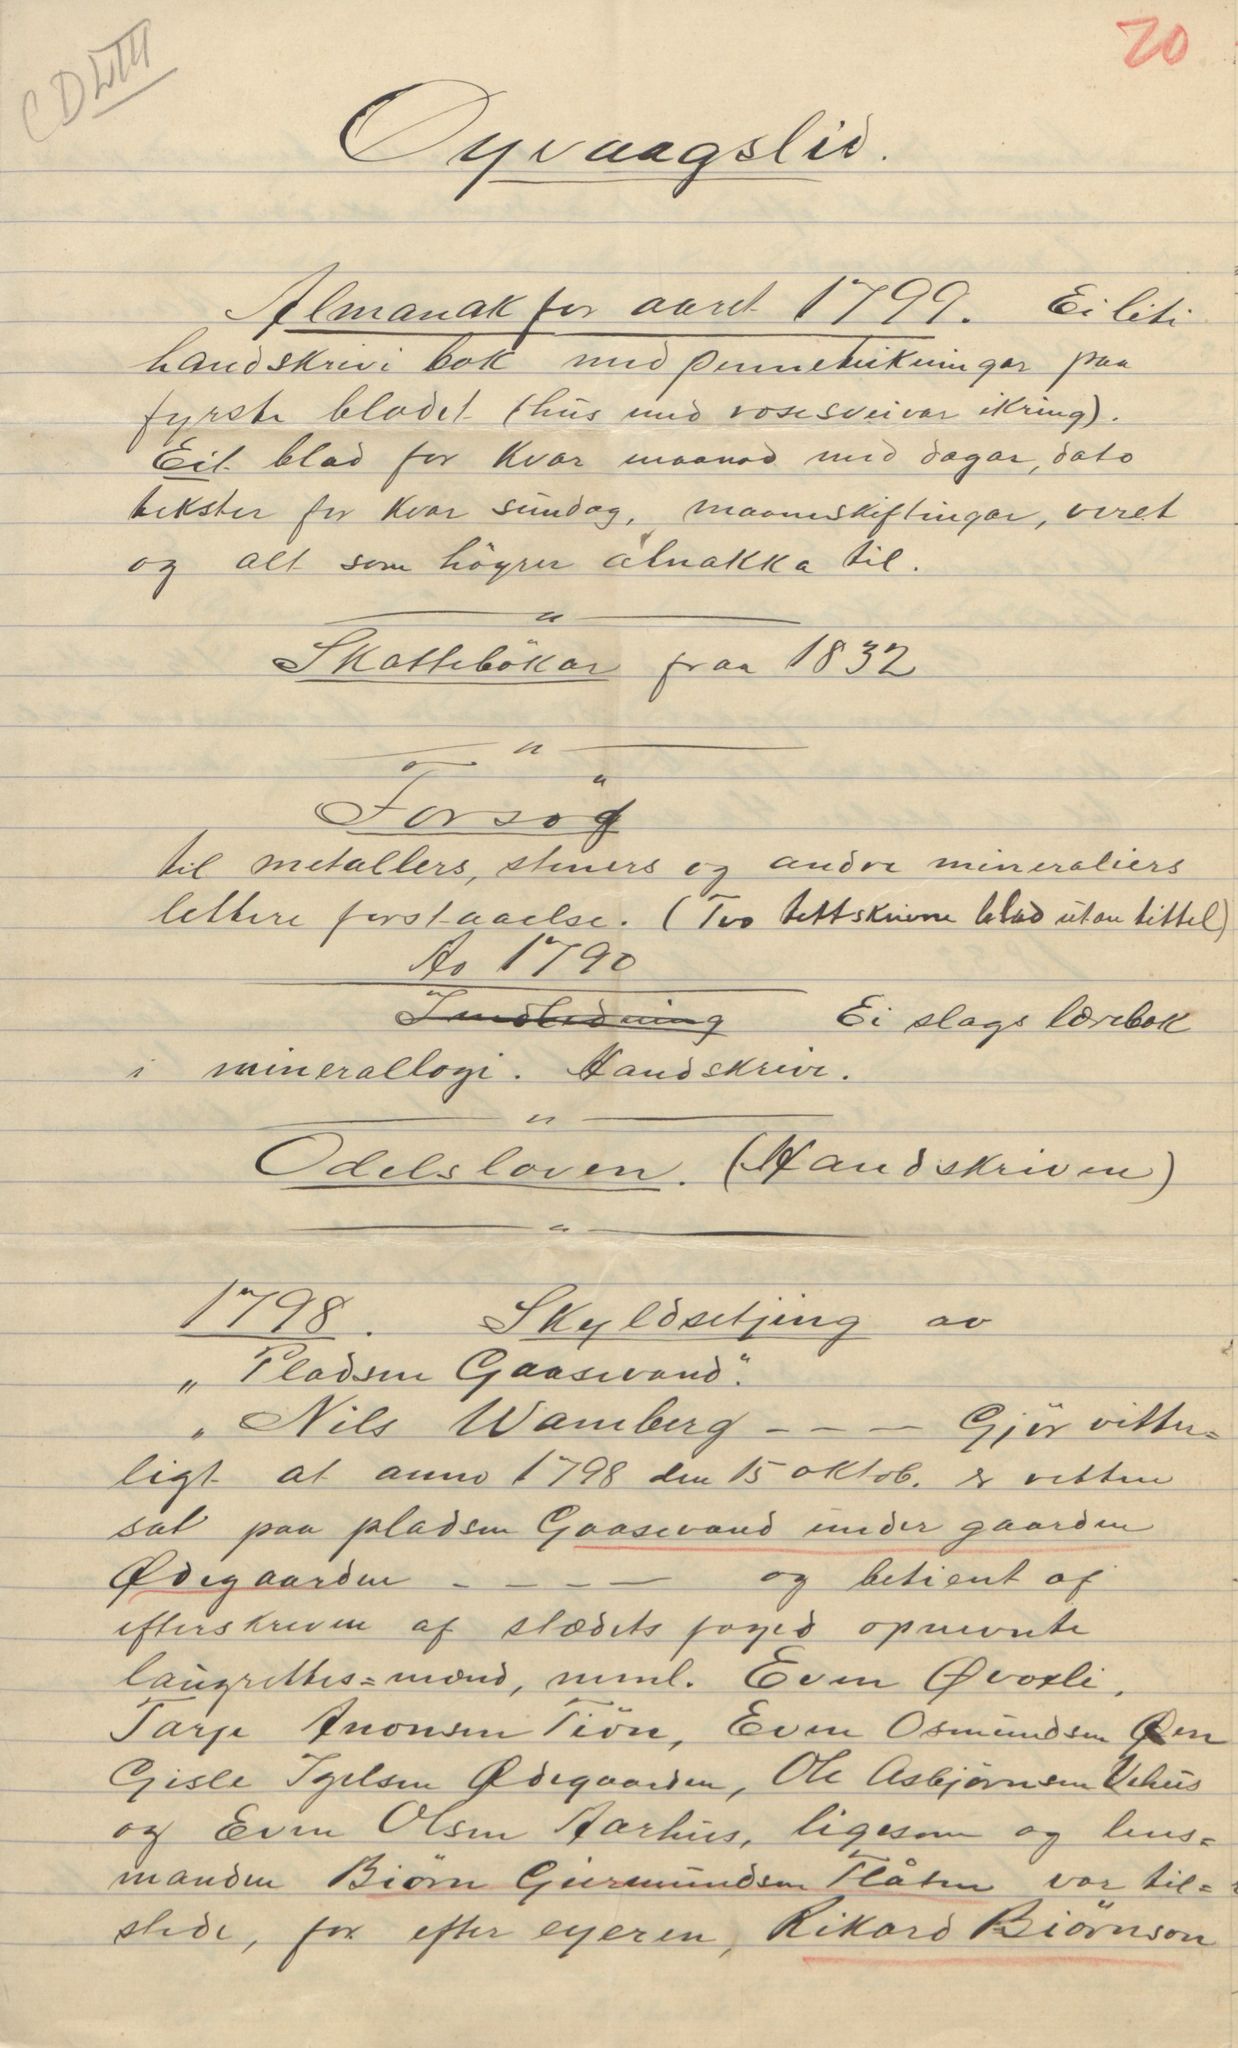 20
Öyvaagslid.
Almanak for aaret 1799. Ei liti
handskrivi bok med penneteikningar paa
fyrste bladet (hus med rosesveivar ikring).
Eit blad for kvar maanad med dagar, dato
tekster for kvar sundag, maaneskiftingar, veret
og alt som höyrer almakka til.
"
Skattebökar fraa 1832
"
Forsög
til metallers, steners og andre mineraliers
lettere forstaaelse. (Tvo tettskrivne blad utan tittel)
Ao 1790
Indledning Ei slags lærebok
i minerallogi. Handskrivi.
"
Odelsloven. (Handskriven)
"
1798. Skyldsetjing av
„ Pladsen Gaasevand".
„ Nils Wamberg - - - Gjör vitter=
ligt at anno 1798 den 15 oktob. er retten
sat paa pladsen Gaasevand under gaarden
Ödegaarden - - - - og betient af
efterskreven af stædets foged opnevnte
laugrettes=mænd, neml. Even Øvoxli,
Tarje Anonsen Tiön, Even Osmundsen Øen
Gisle Igelsen Ødegaarden, Ole Asbjørnsen Vehus
og Even Olsen Aarhus, ligesom og lens=
manden Biörn Giermundsen Flåten var til=
stede, for efter eyeren, Rikard Biörnson